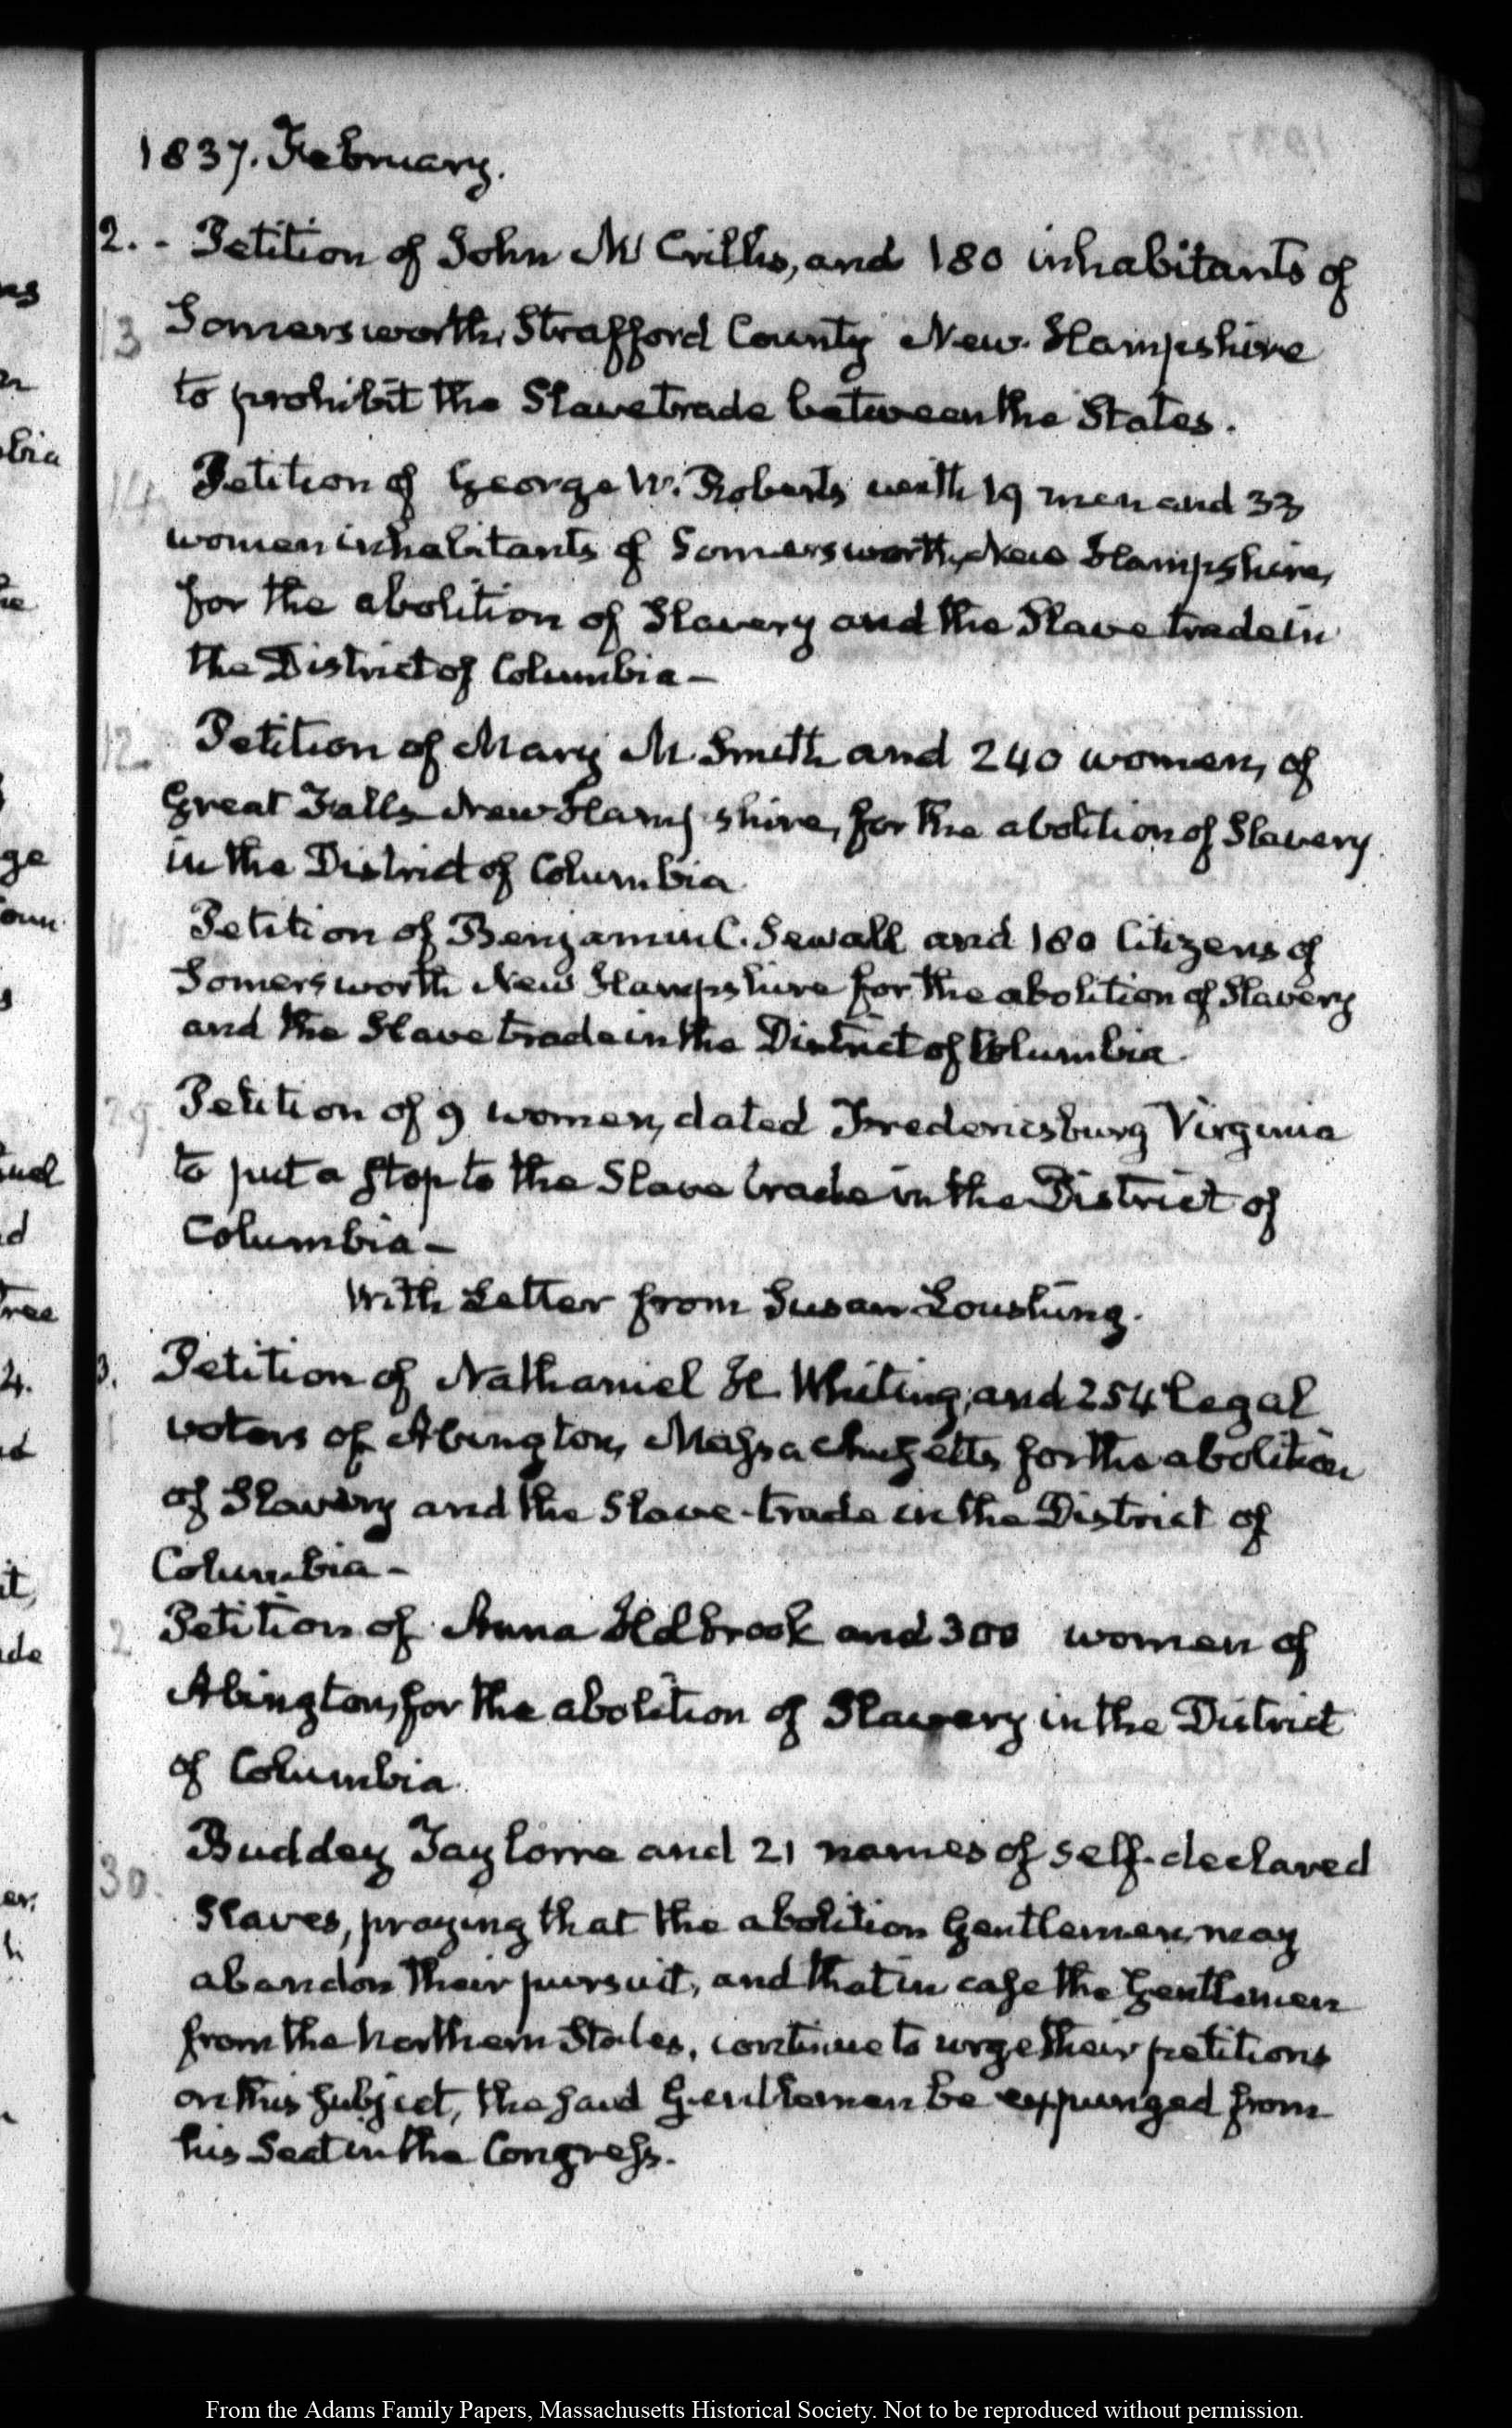 1837. February.
2. - Petition of John McCrillis, and 180 inhabitants of
13 Somersworth, Strafford County New-Hampshire
to prohibit the Slave trade between the States.
14. Petition of George W. Roberts with 19 men and 33
women inhabitants of Somersworth, New Hampshire,
for the abolition of Slavery and the Slave trade in
the District of Columbia -
12. Petition of Mary M. Smith and 240 women, of
Great Falls New Hampshire, for the abolition of Slavery
in the District of Columbia
11 Petition of Benjamin C. Sewall and 180 Citizens of
Somersworth New Hampshire for the abolition of Slavery
and the Slave trade in the District of Columbia.
29. Petition of 9 women, dated Fredericsburg Virginia
to put a stop to the Slave trade in the District of
Columbia -
With Letter from Susan
3. Petition of Nathaniel H. Whiting, and 254 legal
1 voters of Abington, Massachusetts for the abolition
of Slavery and the Slave-trade in the District of
Columbia -
2 Petition of Anna Holbrook and 300 women of
Abington, for the abolition of Slavery in the District
of Columbia.
Buddey Taylorre and 21 names of self-declared
30. Slaves, praying that the abolition Gentlemen, may
abandon their pursuit, and that in case the Gentlemen
from the Northern States, continue to urge their petitions
on this subject, the said Gentlemen be expunged from
his Seat in the Congress.
as
bia
he
ge
oun
ud
d
ree
4.
d
it,
de
er,
h
From the Adams Family Papers, Massachusetts Historical Society. Not to be reproduced without permission.